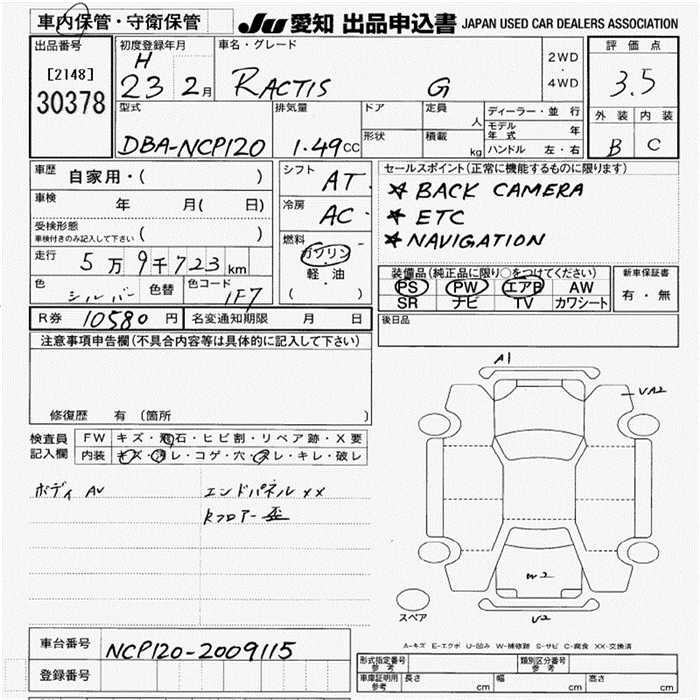 車内保管・守衛保管
JU 愛知 出品申込書 JAPAN USED CAR DEALERS ASSOCIATION
出品番号
[2148]
30378
初度登録年月
H
23 2月
車名・グレード
RACTIS G
2WD
・
4WD
評価点
3.5
外装 内装
B C
型式
DBA-NCP120
排気量
1.49CC
ドア
定員
人
形状
積載
kg
ディーラー・並行
モデル年式 年
ハンドル 左・右
車歴
自家用・( )
車検
年 月( 日)
受検形態
車検付きのみ記入して下さい ( )
走行
5万9千723km
色
シルバー
色替
色コード
1F7
シフト
AT
冷房
AC
燃料
ガソリン
・
軽油
( )
セールスポイント(正常に機能するものに限ります)
★ BACK CAMERA
★ ETC
★ NAVIGATION
装備品(純正品に限り○をつけてください)
PS PW エアB AW
SR ナビ TV カワシート
新車保証書
有・無
R券 10580円 名変通知期限 月 日
後日品
注意事項申告欄(不具合内容等は具体的に記入して下さい)
修復歴 有(箇所
検査員
記入欄
FW キズ・飛石・ヒビ割・リペア跡・X要
内装 キズ・汚レ・コゲ・穴・スレ・キレ・破レ
ボディ AU
エンドパネル XX
Rフロアー 歪
A1
UA2
W2
U2
スペア
A-キズ E-エクボ U-凹み W-補修跡 S-サビ C-腐食 XX-交換済
車台番号 NCP120-2009115
登録番号
形式指定番号
参考
類別区分番号
参考
車庫証明用
参考
長さ cm 幅 cm 高さ cm